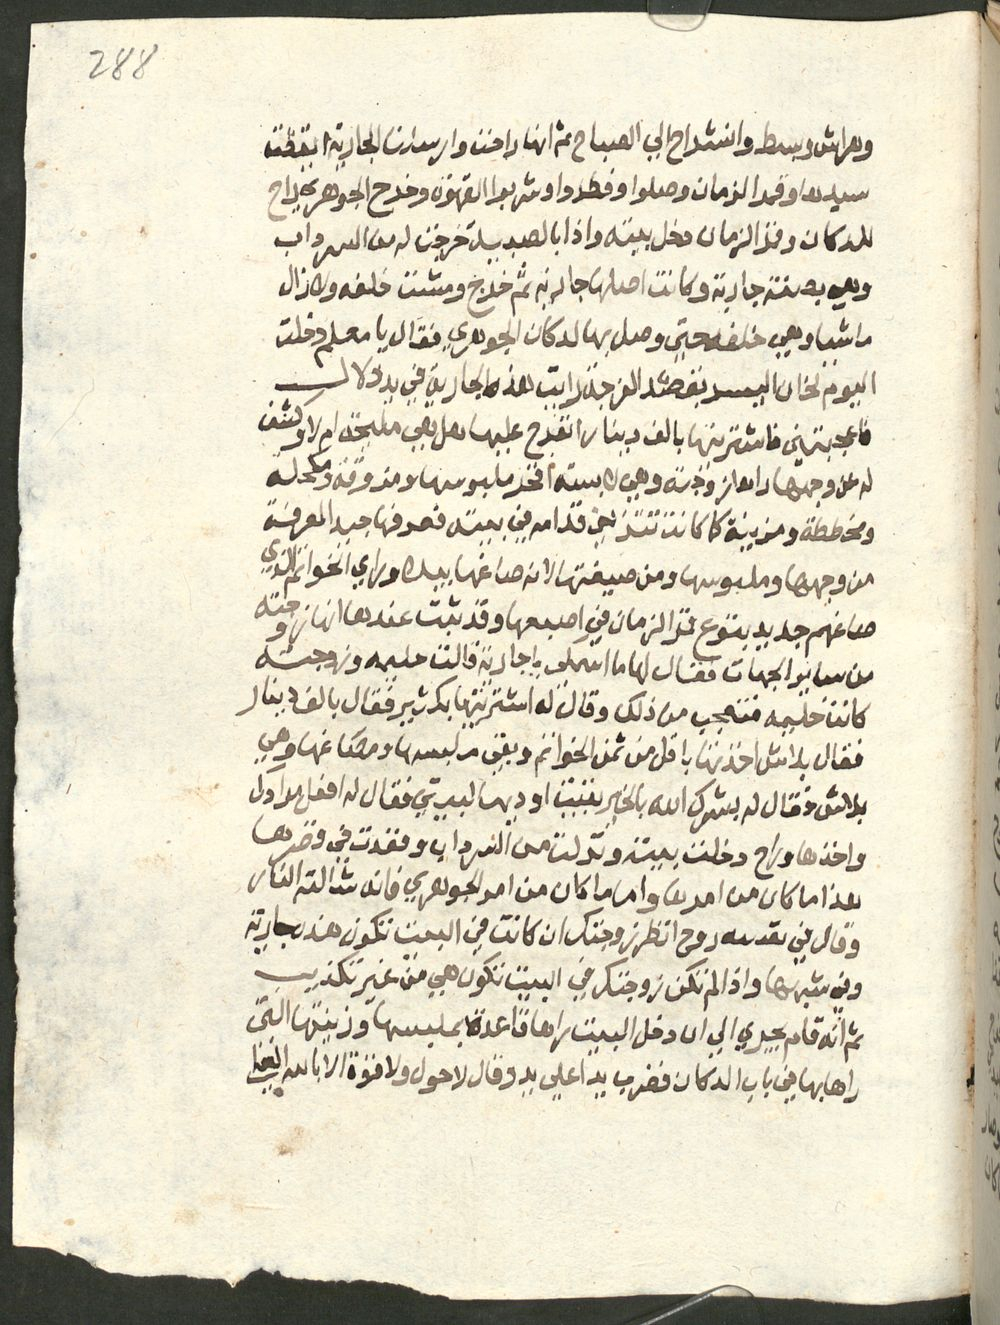 288
وهراش وبسط وانشداح الي الصباح ثم انها راحت وارسلت الجاريه ايقظت
سيدها وقمر الزمان وصلوا وفطروا وشربوا القهوه وخرج الجوهري راح
للدكان وقمر الزمان دخل بيته واذا بالصبيه خرجت له من السرداب
وهي بصفة جارية وكانت اصلها جاريه ثم خرج ومشت خلفه ولا زال
ماشيا وهي خلفه حتي وصل بها لدكان الجوهري فقال يا معلم دخلت
اليوم لخان اليسر بقصد الفرجه رايت هذه الجارية في يد دلال
فاعجبتني فاشتريتها بالف دينار اتفرج عليها هل هي مليحه ام لا وكشف
له عن وجهها راها زوجته وهي لابسه افخر ملبوسها ومزوقه ومكحله
ومخططة ومزينة كما كانت تتزين قدامه في بيته فعرفها جيد المعرفة
من وجهها وملبوسها ومن صيغتها لانه صاغها بيده وراي الخواتم الذي
صاغهم جديد بتوع قمر الزمان في اصبعها وقد ثبت عنده انها زوجته
من ساير الجهات فقال لها ما اسمك يا جارية قالت حليمه وزوجته
كانت حليمه فتعجب من ذلك وقال له اشتريتها بكم شير فقال بالف دينار
فقال بلاش اخذتها باقل من ثمن الخواتم وبقي ملبسها ومصاغها وهي
بلاش فقال له بشرك الله بالخير بقيت اوديها لبيتي فقال له افعل مرادك
واخذها وراح دخلت بيته ونزلت من السرداب وقعدت في قصرها
هذا ما كان من امرها واما ما كان من امر الجوهري فانه شالته النار
وقال في نفسه روح انظر زوجتك ان كانت في البيت تكون هذه جارية
وفي شبهها واذا لم تكن زوجتك في البيت تكون هي من غير تكذيب
ثم انه قام يجري الي ان دخل البيت راها قاعدة بملبسها وزينتها التي
راها بها في باب الدكان فضرب يدا علي يد وقال لا حول ولا قوة الا بالله